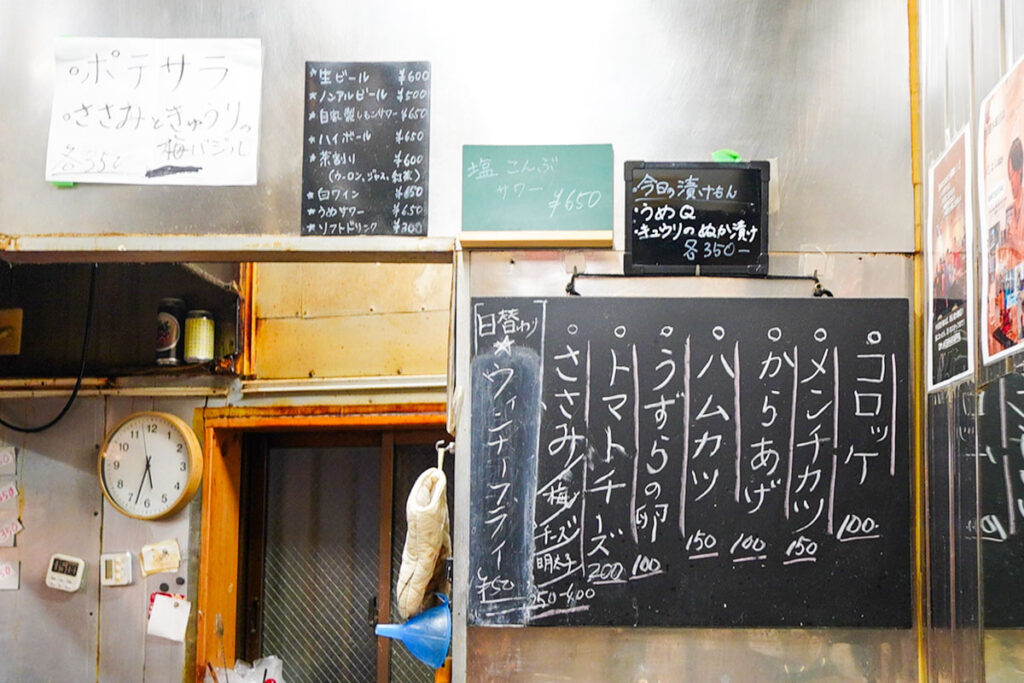 ○ポテサラ
○ささみときゅうりの
梅バジル
各350
★生ビール ¥600
★ノンアルビール ¥500
★自家製レモンサワー ¥650
★ハイボール ¥650
★茶割り ¥600
(ウーロン、ジャス、紅茶)
★白ワイン ¥650
★うめサワー ¥650
★ソフトドリンク ¥300
塩こんぶ
サワー
¥650
・今日の漬けもん
・うめQ
・キュウリのぬか漬け
各350-
○コロッケ 100-
○メンチカツ 150
○からあげ 100
○ハムカツ 150
○うずらの卵 100
○トマトチーズ 200
○ささみ/梅/チーズ/明太子 250-400
[日替わり]
★ウィンナーフライ ¥150
12
1
2
3
4
5
6
7
8
9
10
11